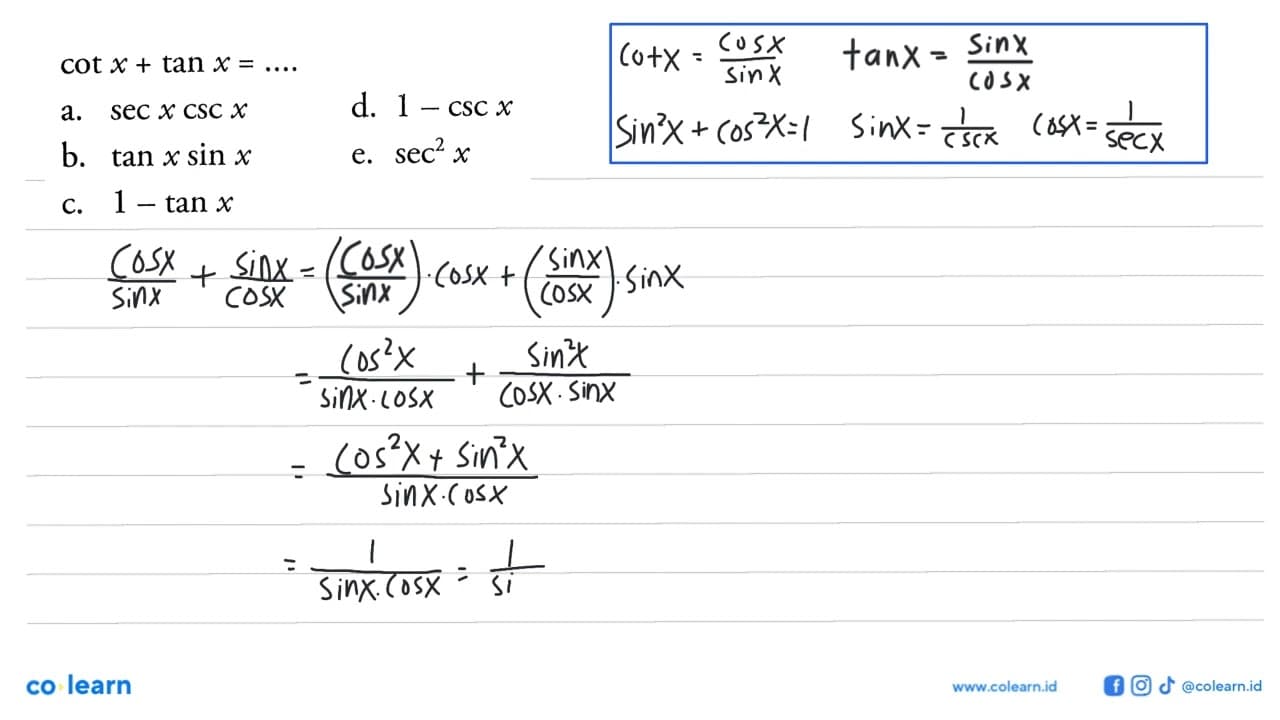 cot x + tan x = ....
a. sec x csc x
b. tan x sin x
c. 1 − tan x
d. 1 − csc x
e. sec² x
cotx = cosx/sinx tanx = sinx/cosx
sin²x + cos²x=1 sinx = 1/cscx cosx = 1/secx
cosx/sinx + sinx/cosx = (cosx/sinx).cosx + (sinx/cosx).sinx
= cos²x/sinx.cosx + sin²x/cosx.sinx
= cos²x + sin²x/sinx.cosx
= 1/sinx.cosx = 1/si
co learn
www.colearn.id
@colearn.id